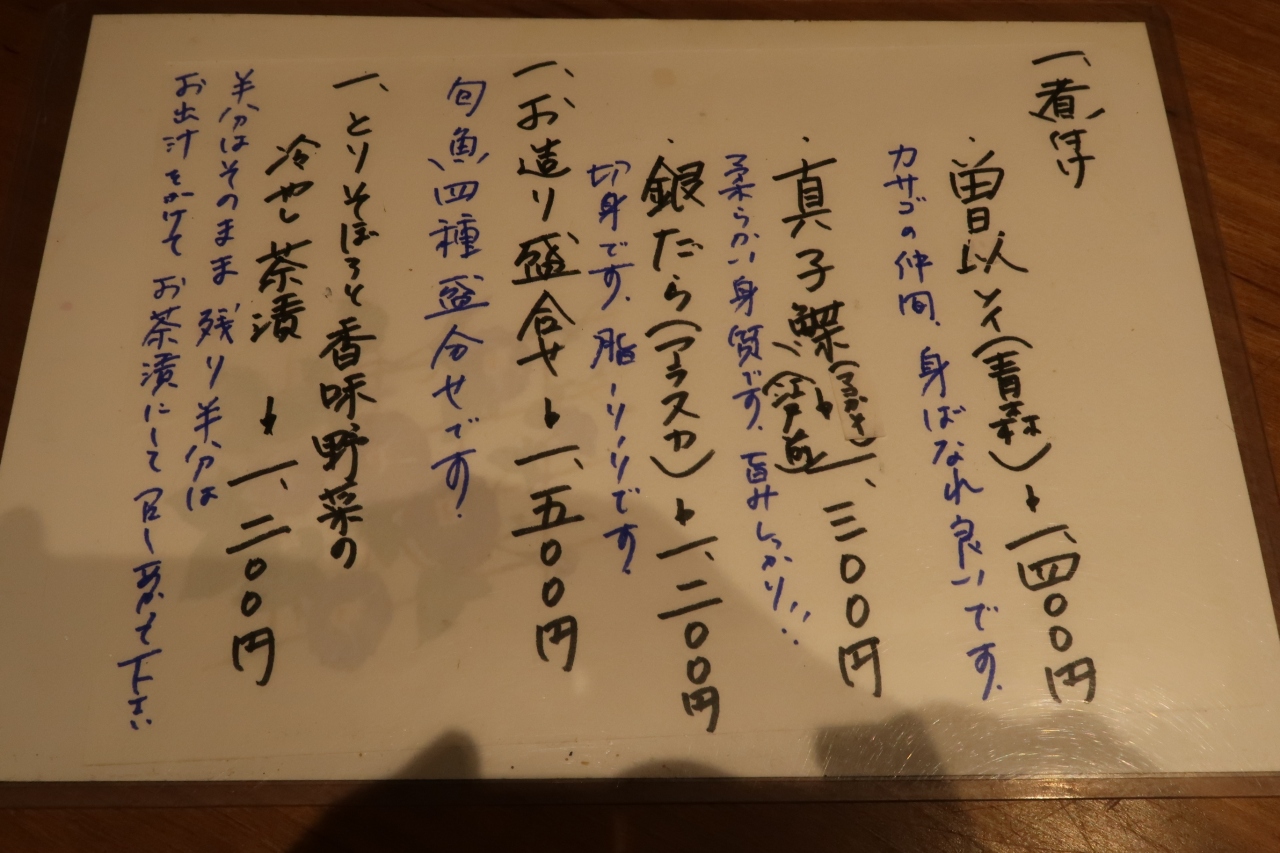 一、煮付け
・曽以ソイ(青森)→一、四〇〇円
カサゴの仲間、身ばなれ良いです。
・真子鰈(まるがき)一、三〇〇円
柔らかい身質です。旨みしっかり!!
・銀だら(アラスカ)→一、二〇〇円
切身です。脂ーリーリです。
一、お造り盛合せ→一、五〇〇円
旬魚四種盛合せです。
一、とりそぼろと香味野菜の
冷やし茶漬→一、二〇〇円
半分はそのまま 残り半分は
お出汁をかけて お茶漬にして召し上がって下さい